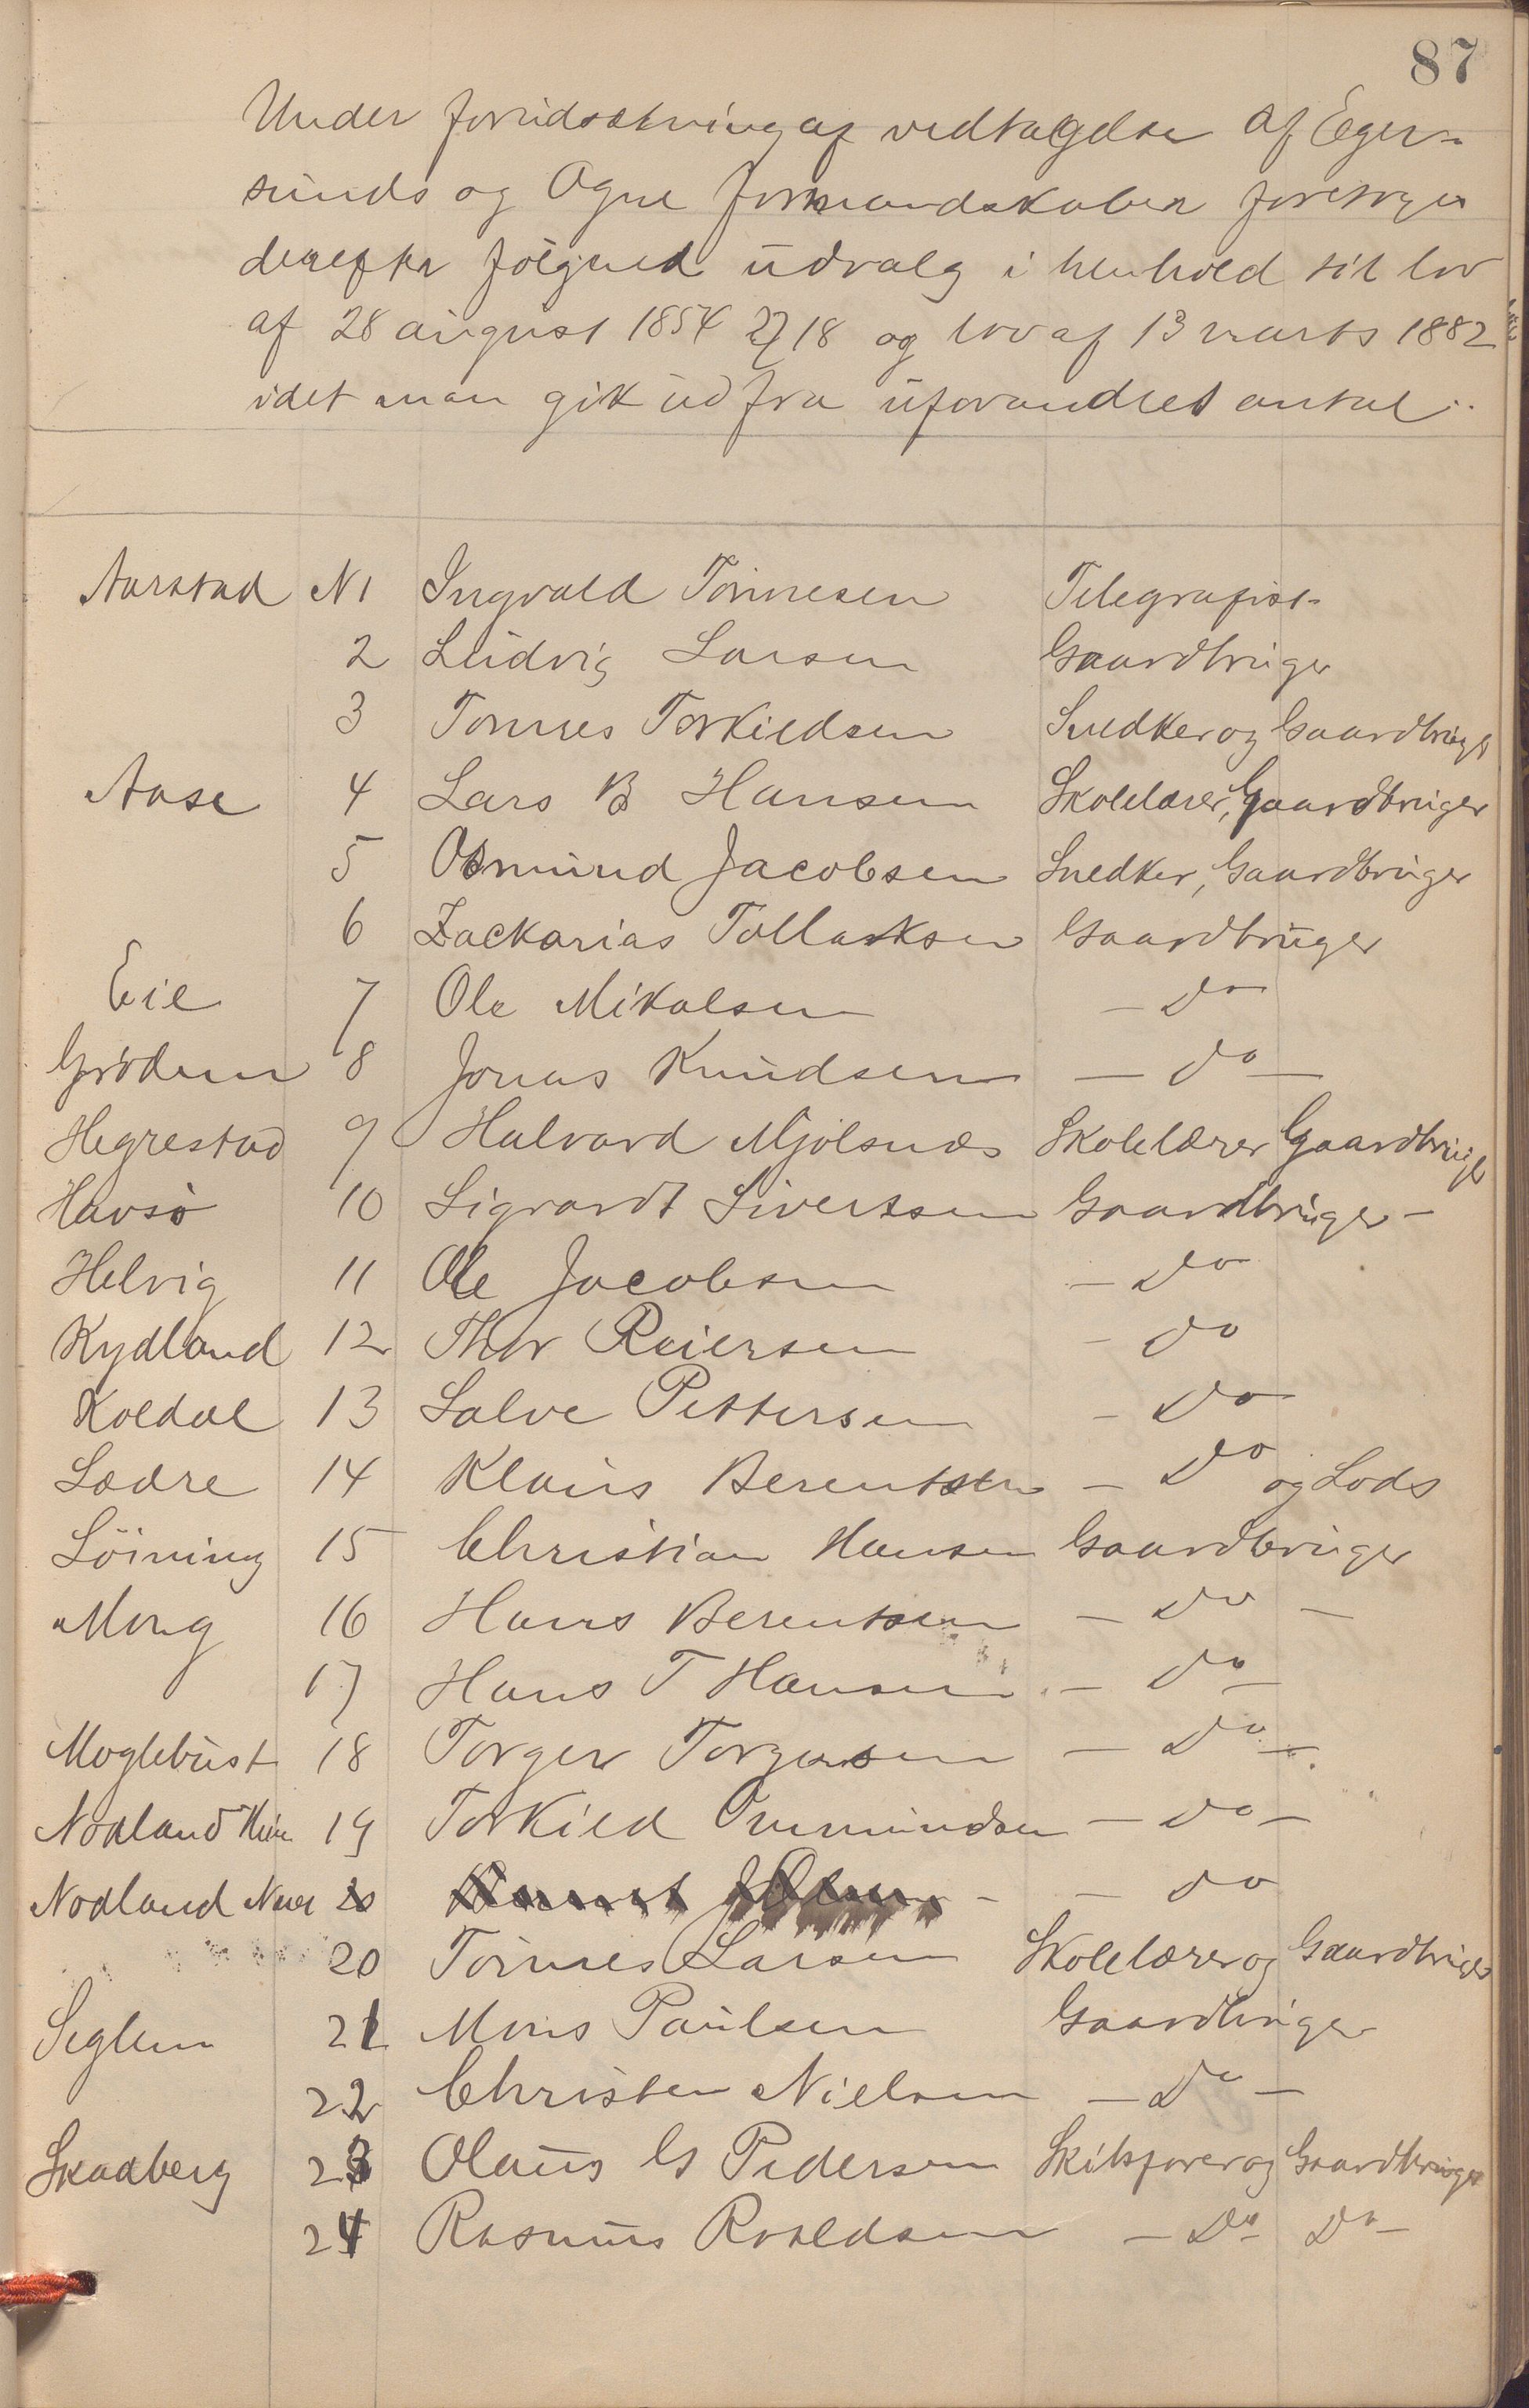 87
Under forudsætning af vedtagelse af Eger-
sunds og Ogne formandskaber foretoges
derefter følgned udvalg i henhold til lov
af 28 august 1854 § 18 og lov af 13 marts 1882
idet man gik ud fra uforandret antal:
Aarstad N1 Ingvald Tönnesen Telegrafist
2 Ludvig Larsen Gaardbruger
3 Tönnes Torkildsen Snedker og Gaardbruger
Aase 4 Lars B Hansen Skolelærer, Gaardbruger
5 Osmund Jacobsen Snedker, Gaardbruger
6 Zackarias Tollaksen Gaardbruger
Eie 7 Ole Mikalsen - do
Grödem 8 Jonas Knudsen - do -
Hegrestad 9 Halvard Mjölsnæs Skolelærer Gaardbruger
Havsö 10 Sigvardt Sivertsen Gaardbruger -
Helvig 11 Ole Jacobsen - do
Kydland 12 Thor Reiersen - do
Koldal 13 Salve Pettersen - do
Lædre 14 Klaus Berentsen - do og Lods
Löining 15 Christian Hansen Gaardbruger
Mong 16 Hans Berentsen - do -
17 Hans T Hansen - do -
Moglebust 18 Torger Torgersen - do -
Nodland 19 Torkild Ommundsen - do -
Nodland Nere 20 - - do
20 Tönnes Larsen Skolelærer og Gaardbruger
Seglem 21 Mons Paulsen Gaardbruger
22 Christen Nielsen - do -
Skadberg 23 Olaus G Pedersen Skibsförer og Gaardbruger
24 Rasmus Roaldsen - do - do -